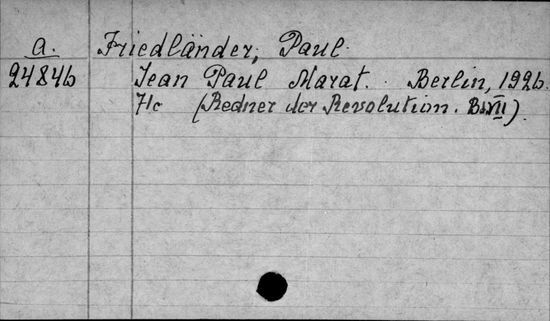 a. Friedländer, Paul.
24846 Jean Paul Marat. Berlin, 1926.
71c (Redner der Revolution. Bd. VII).